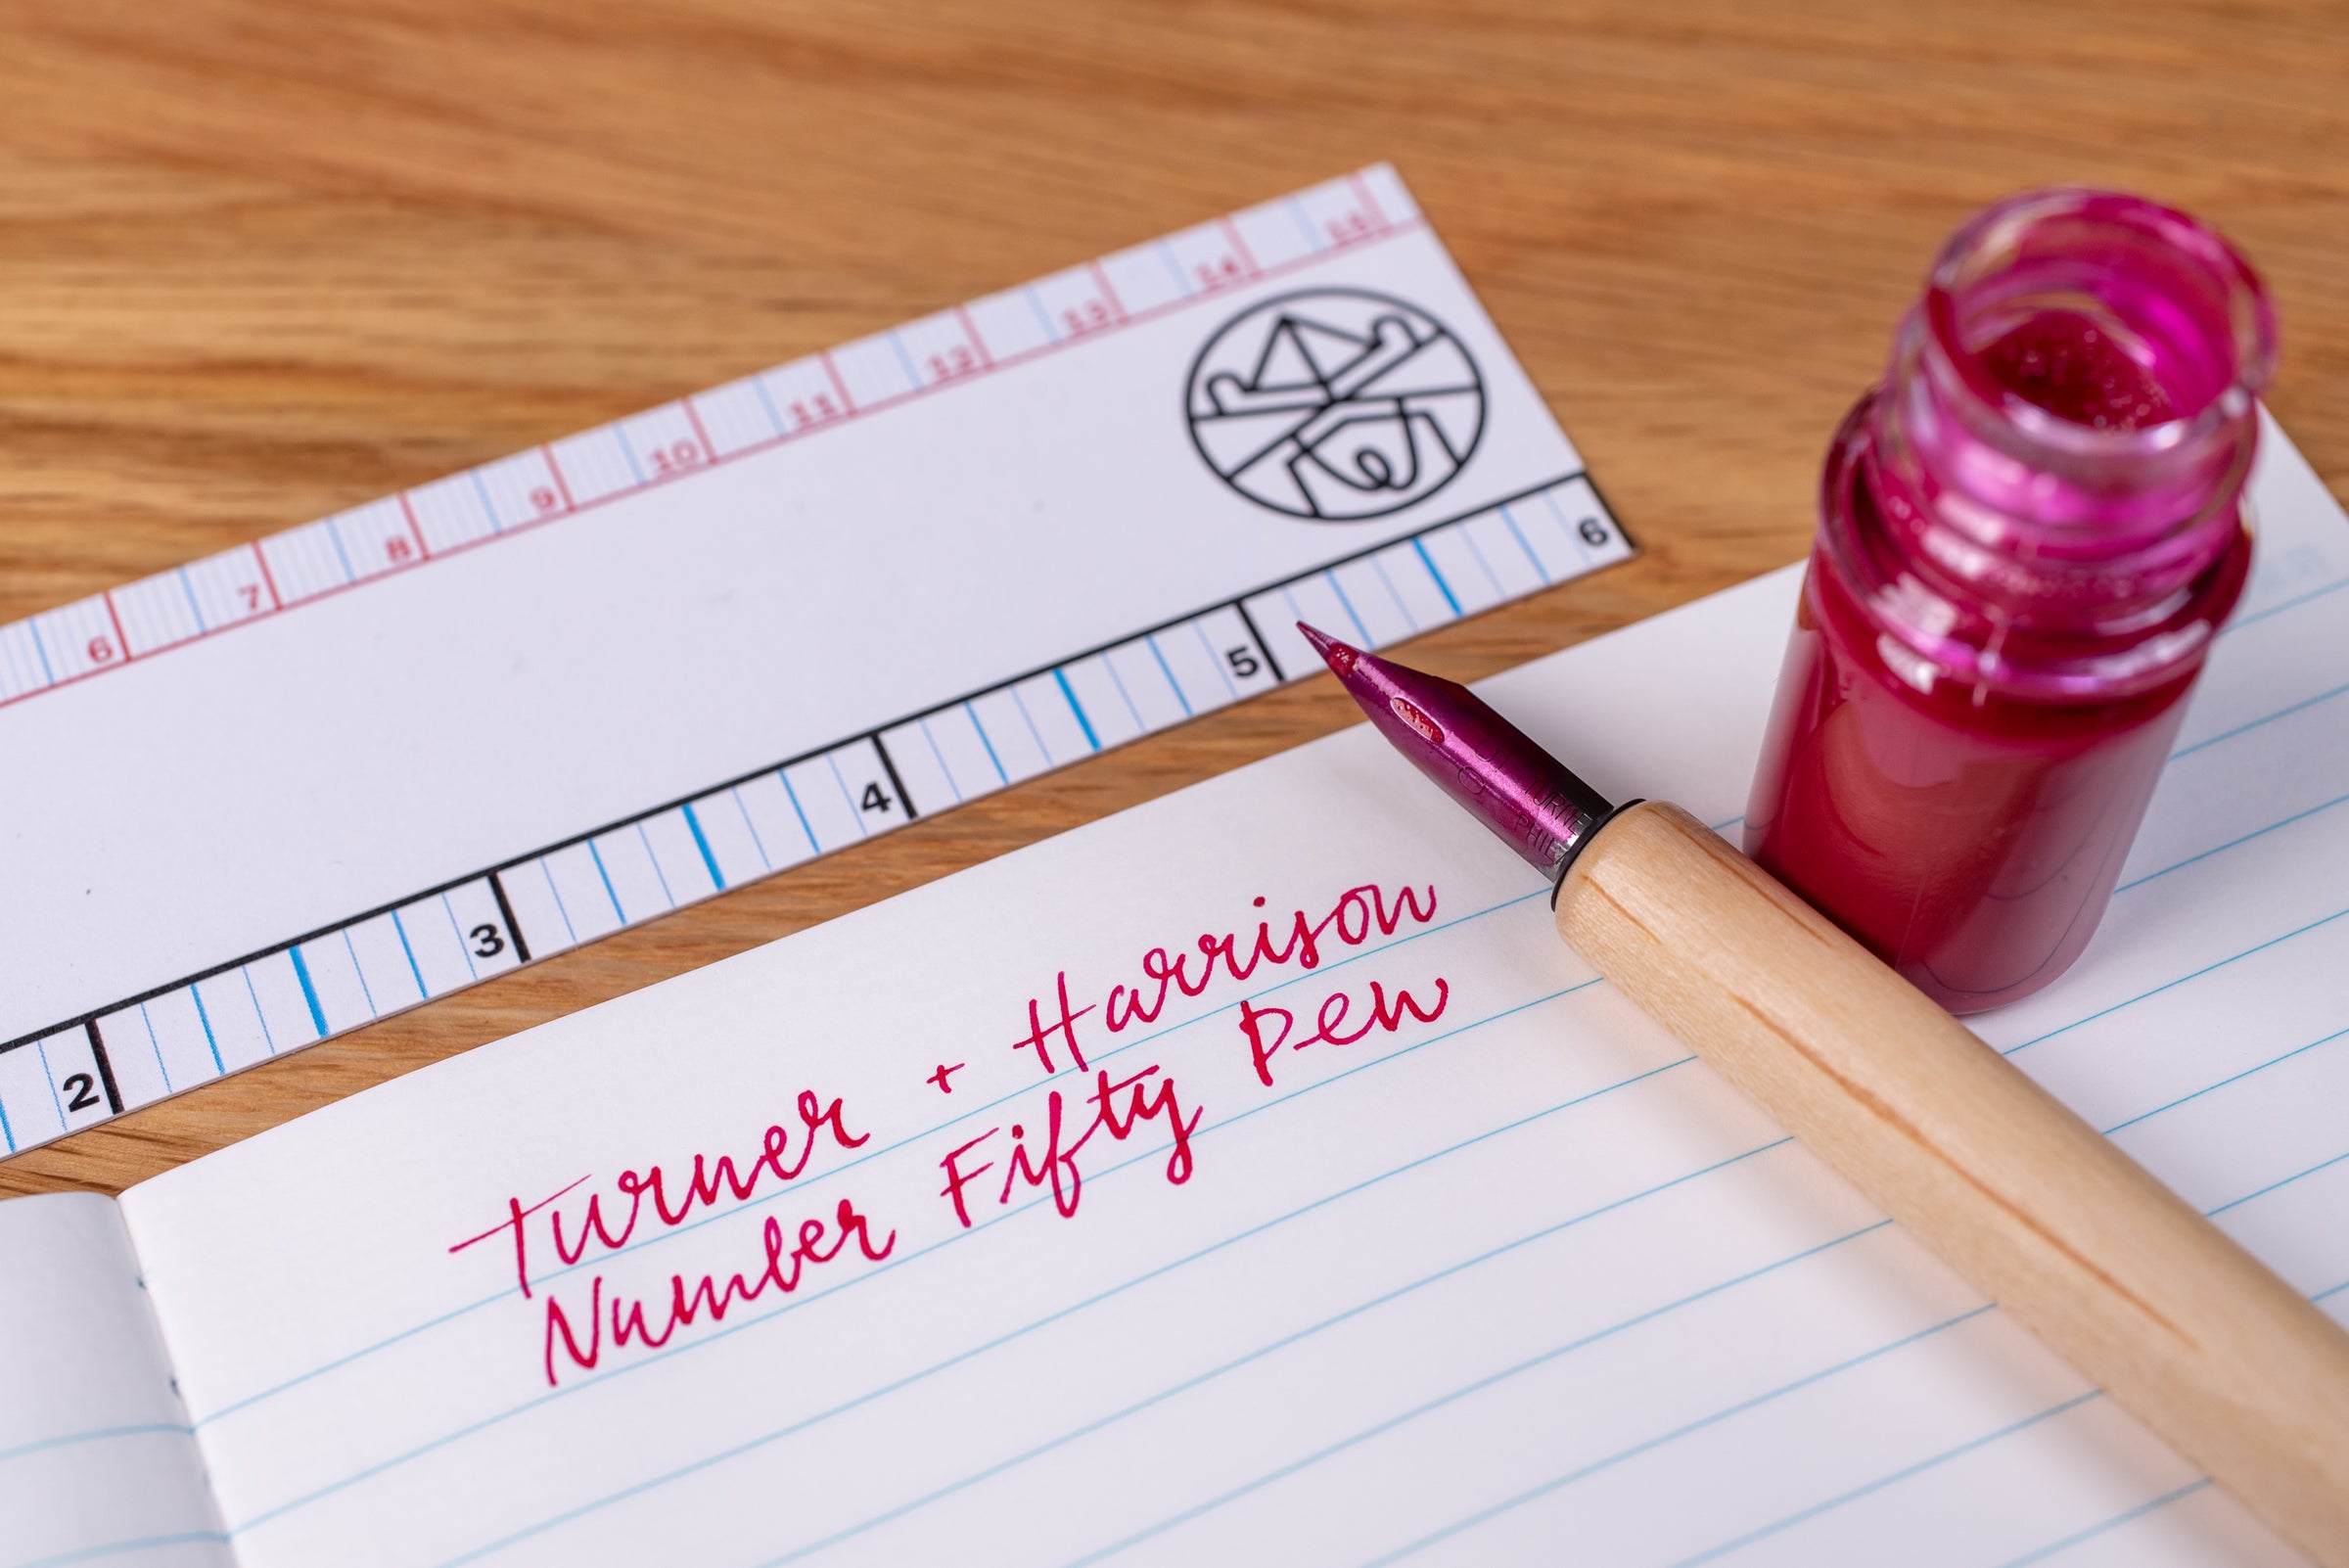 6 7 8 9 10 11 12 13 14 15
2 3 4 5 6
Turner + Harrison
Number Fifty Pen